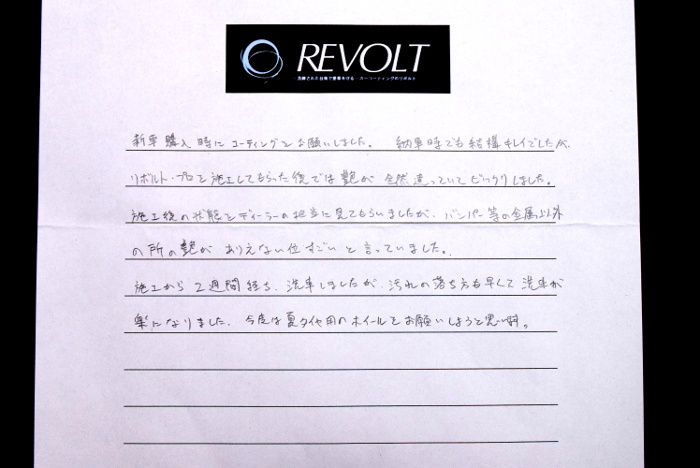 REVOLT
洗練された技術で愛車を守る カーコーティングのリボルト
新車購入時にコーティングをお願いしました。 納車時でも結構キレイでしたが、
リボルト・プロを施工してもらった後では艶が全然違っていてビックリしました。
施工後の状態をディーラーの担当に見てもらいましたが、バンパー等の金属以外
の所の艶がありえない位すごいと言っていました。
施工から2週間経ち、洗車しましたが、汚れの落ち方も早くて洗車が
楽になりました。今度は夏タイヤ用のホイールをお願いしようと思います。